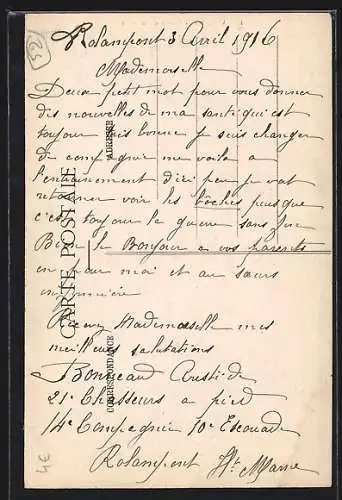 52
Rolampont 3 Avril 1916
Mademoiselle
Deux petit mot pour vous donner
des nouvelles de ma santé qui est
toujour très bonne je suis changer
de compagnie me voila a
l'entrainement d'ici peu je vat
retourner voir les bôches puis que
c'est toujour la guerre sans fin
Bien le Bonjour a vos parents
un pour moi et au sœurs
Recevez Mademoiselle mes
meilleures salutations
Bonneaud Aristide
21e Chasseurs a pied
14e Compagnie 10e Escouade
Rolampont Hte Marne
CARTE POSTALE
ADRESSE
CORRESPONDANCE
4E